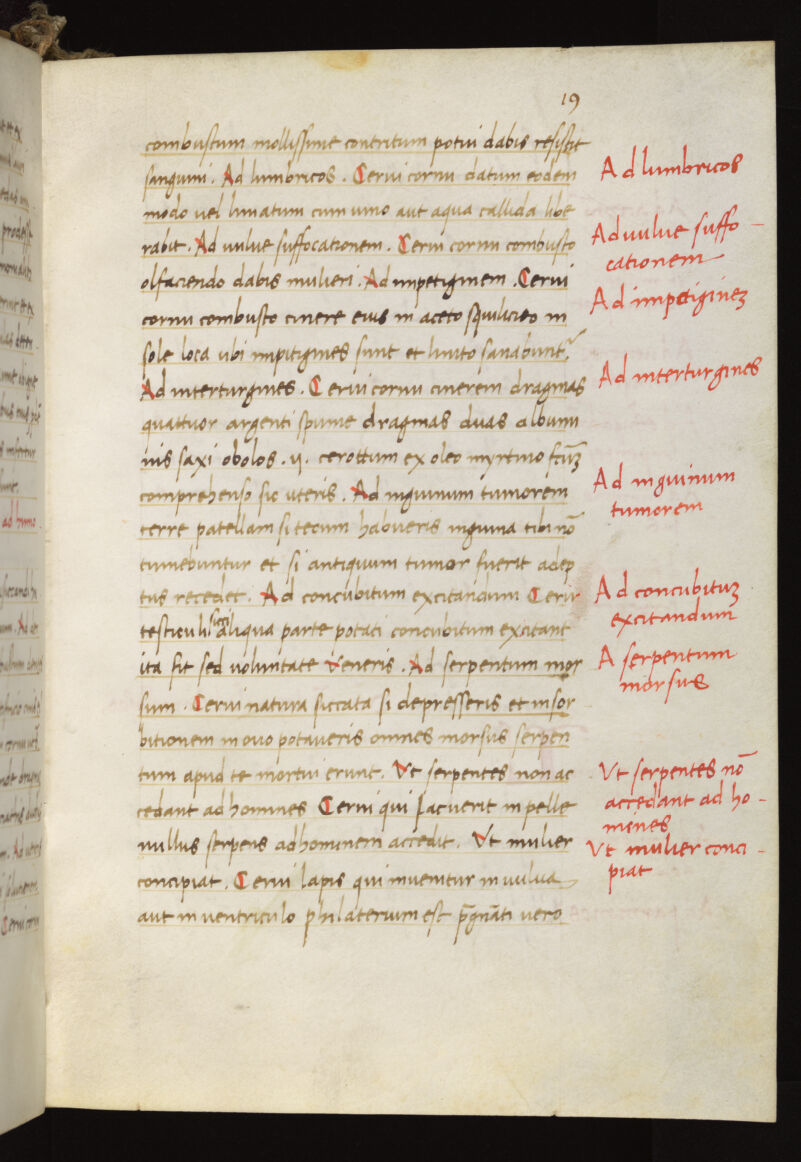 19
combustum mollissime contritum potui dabis resistit
sanguini. Ad lumbricos. Cerui cornu datum eodem
modo uel limatum cum uino aut aqua callida libe
rabit. Ad uulue suffocationem. Cerui cornu combusto
olfaciendo dabis mulieri. Ad impetiginem. Cerui
cornu combusto cinere eius in aceto squillitico in
sole loca ubi impitigines sunt et linito sanabunt̃.
Ad interturgines. Cerui cornu cinerem dragmas
quattuor argenti spume dragmas duas albumi
nis saxi obolos .vj. cerottum ex oleo myrtino
comprehenso sic uteris. Ad inguinum tumorem
terre patellam si tecum habueris inguina tibi nō
tumebuntur et si antiquum tumor fuerit adep
tus recedet. Ad concubitum excitandum Cerui
testiculi sicci aliqua parte potati concubitum excitant
ita fit sed uoluntate Veneris. Ad serpentum mor
sum. Cerui natura siccata si depresseris et in sor
bitionem in ouo potaueris omnes morsus serpen
tum apud te mortui erunt. Ut serpentes non ac
cedant ad homines Cerui qui Jacuerit in pelle
nullus serpens ad hominem accedit. Ut mulier
concipiat. Cerui lapis qui inuenitur in uulua
aut in ventriculo philaterium est p̄gnāti uero
Ad lumbricos
Ad uulue suffo-
cationem
Ad impetigineʒ
Ad interturgines
Ad inguinum
tumorem
Ad concubituʒ
excitandum
A serpentum
morsus
Ut serpentes nō
accedant ad ho-
mines
Ut mulier conci-
piat